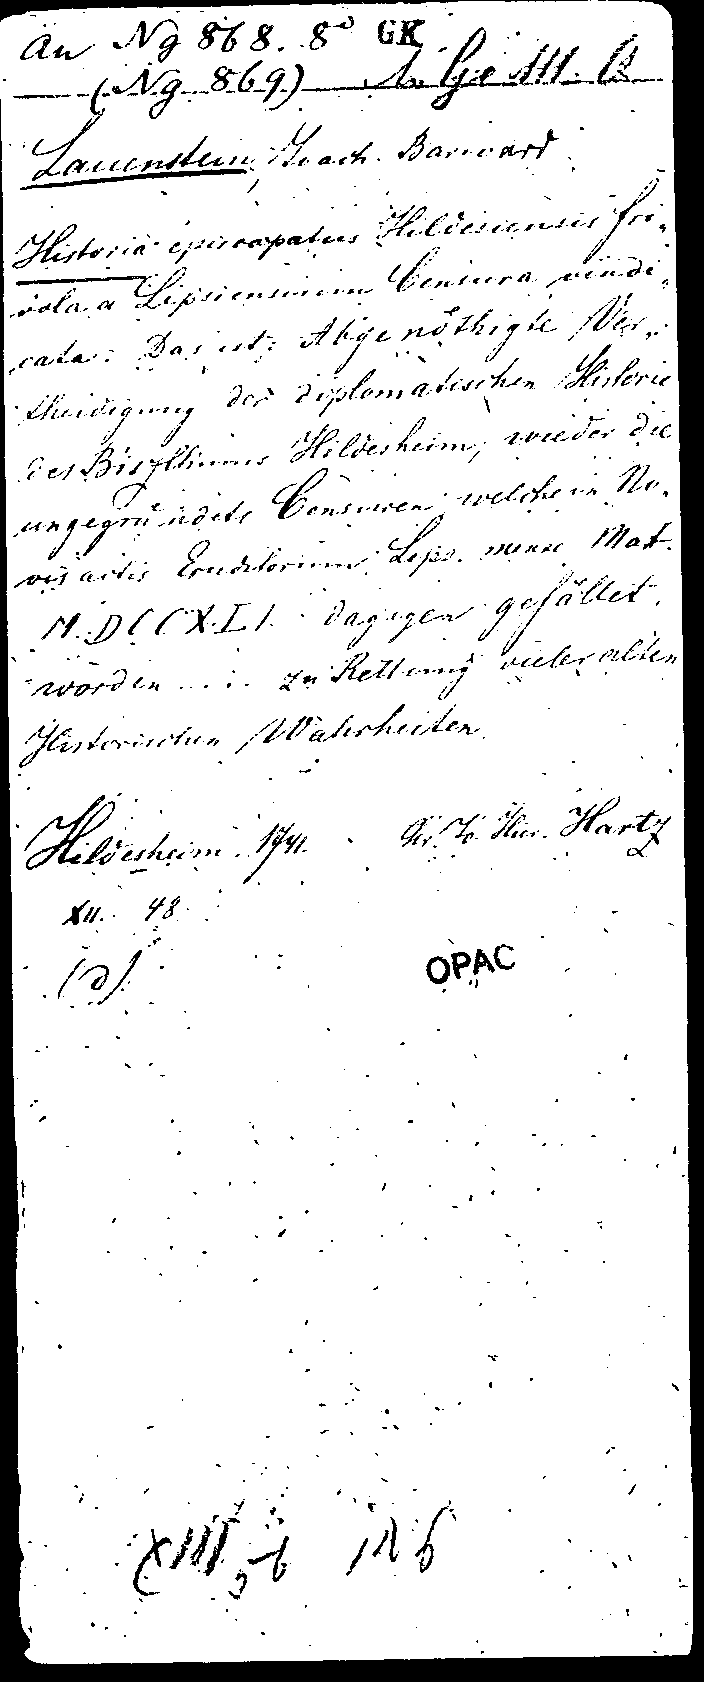 an Ng 868. 8° GK
(Ng 869)
Lauenstein, Joach. Barward
Historia episcopatus Hildesiensis fri-
vola a Lipsiensium Censura vindi-
cata: Das ist: Abgenöthigte Ver-
theidigung der diplomatischen Historie
des Bisthums Hildesheim, wieder die
ungegründete Censuren welche in No-
vis actis Eruditorium Lips. mense Mart.
M.DCCXLI. dagegen gefället
worden ... zu Rettung vieler alten
Historischen Wahrheiten.
Hildesheim. 1741. Hartz
48
(d)
OPAC
XIII